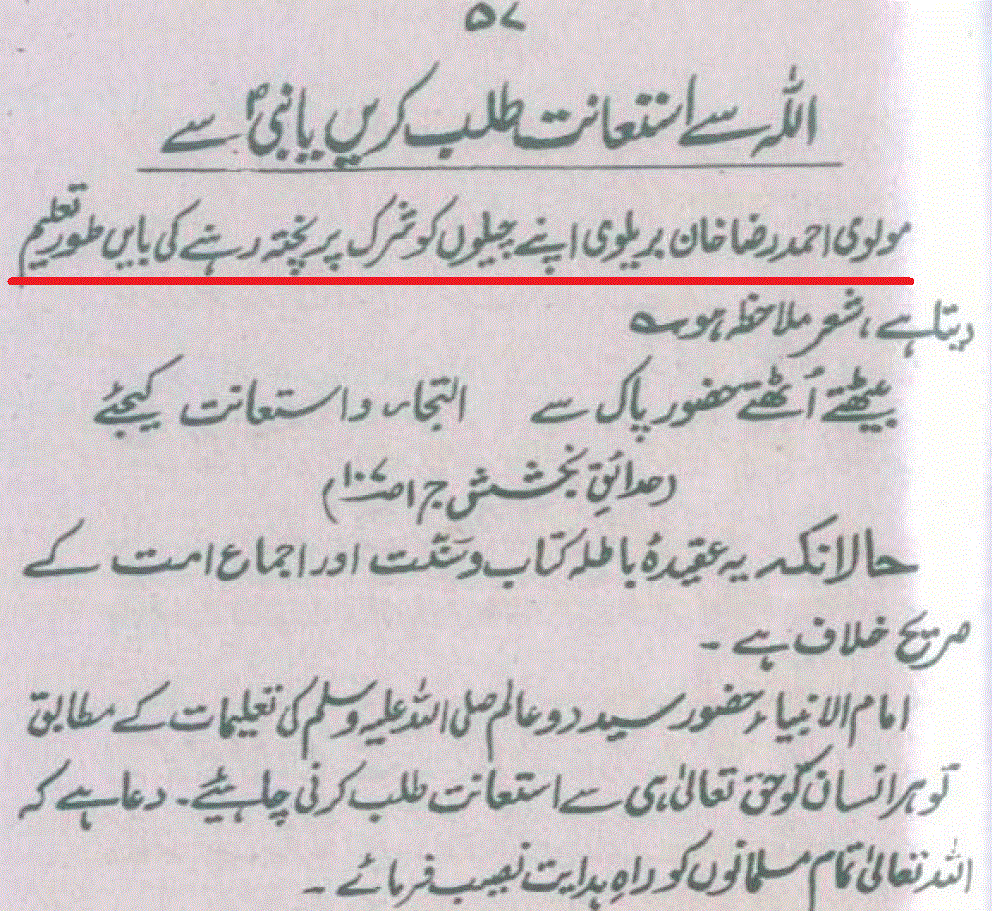 ۵۷
اللہ سے استعانت طلب کریں یا نبیؐ سے
مولوی احمد رضا خان بریلوی اپنے چیلوں کو شرک پر پختہ رہنے کی بایں طور تعلیم
دیتا ہے، شعر ملاحظہ ہو ؎
بیٹھتے اُٹھتے حضور پاک سے التجاء و استعانت کیجئے
(حدائقِ بخشش ج ۱ صـ ۱۰۷)
حالانکہ یہ عقیدہ باطلہ کتاب و سنّت اور اجماع امت کے
صریح خلاف ہے۔
امام الانبیاء حضور سید دو عالم صلی اللہ علیہ وسلم کی تعلیمات کے مطابق
تو ہر انسان کو حق تعالیٰ ہی سے استعانت طلب کرنی چاہیئے۔ دعا ہے کہ
اللہ تعالیٰ تمام مسلمانوں کو راہِ ہدایت نصیب فرمائے۔